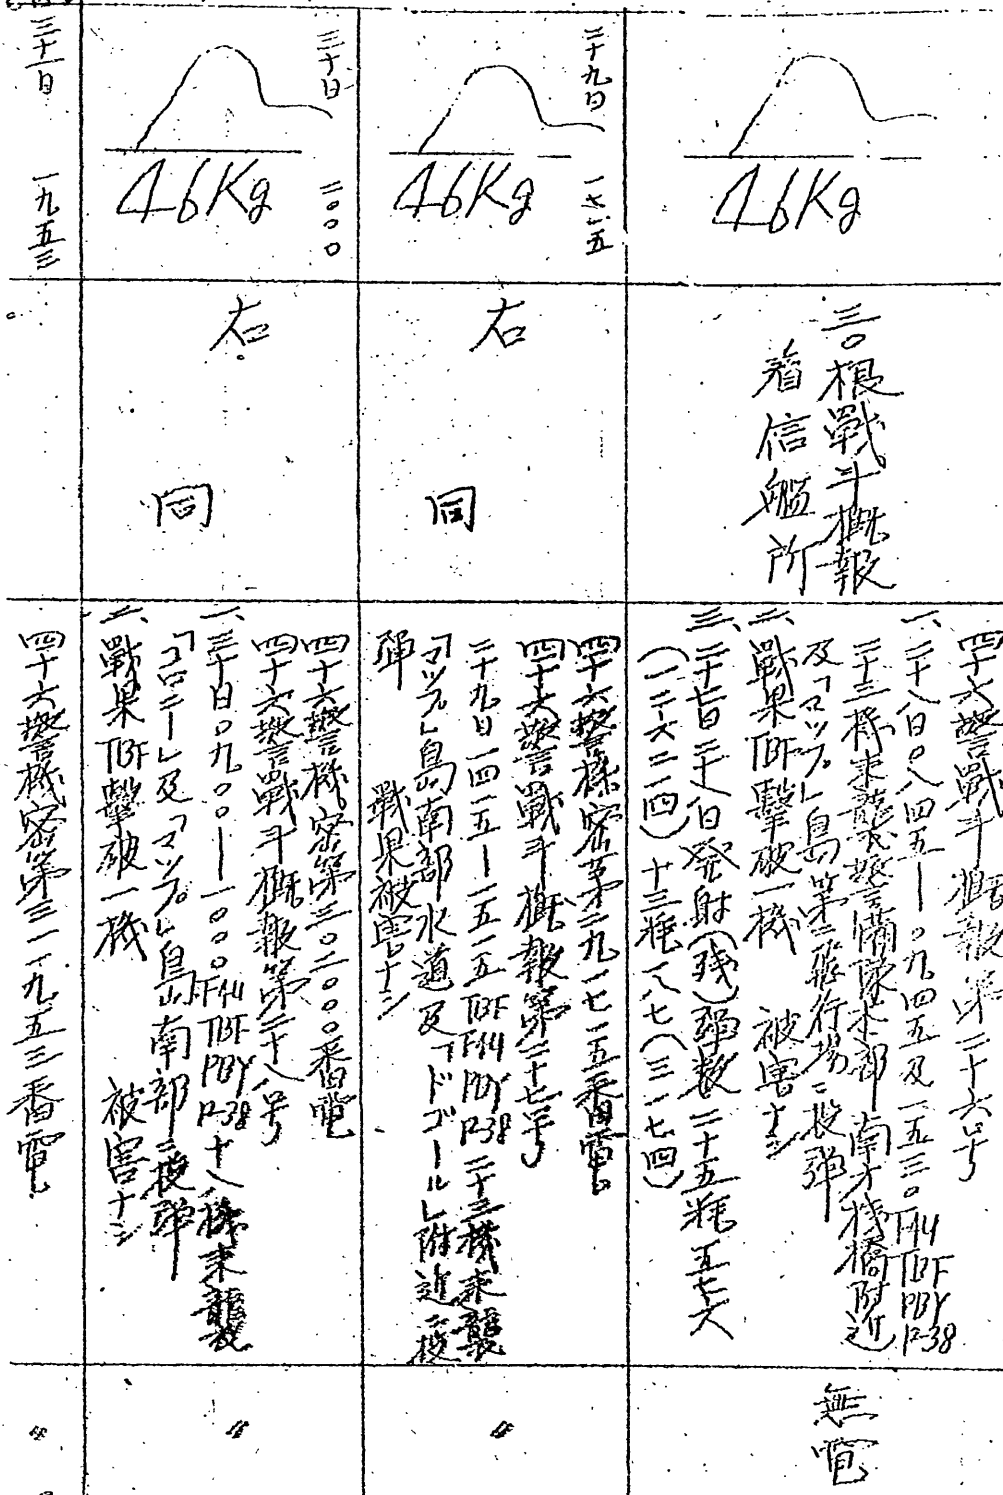 46Kg
三〇根戰斗概報
着信艦所
四十六警戰斗概報第二十六号
一、二十八日〇八四五—〇九四五及一五三〇F4U TBF PBY P-38
二十三機来襲警備隊本部南方桟橋附近
及「マップ」島第二飛行場ニ投弾
二、戰果TBF擊破一機 被害ナシ
三、二十七日二十八日発射(残)弾数二十五粍五七六
(一二六二一四)十三粍一八七(三一七四)
無電
二十九日 一七一五
46Kg
右同
四十六警機密第二九一七一五番電
四十六警戰斗概報第二十七号
二十九日一四一五—一五一五TBF F4U PBY P-38二十三機来襲
「マップ」島南部水道及「ドゴール」附近ニ投
弾 戰果被害ナシ
〃
三十日 二〇〇〇
46Kg
右同
四十六警機密第三〇二〇〇〇番電
四十六警戰斗概報第二十八号
一、三十日〇九〇〇—一〇〇〇F4U TBF PBY P-38十八機来襲
「コロニー」及「マップ」島南部ニ投弾
二、戰果TBF擊破一機 被害ナシ
〃
三十一日 一九五三
四十六警機密第三一一九五三番電
〃